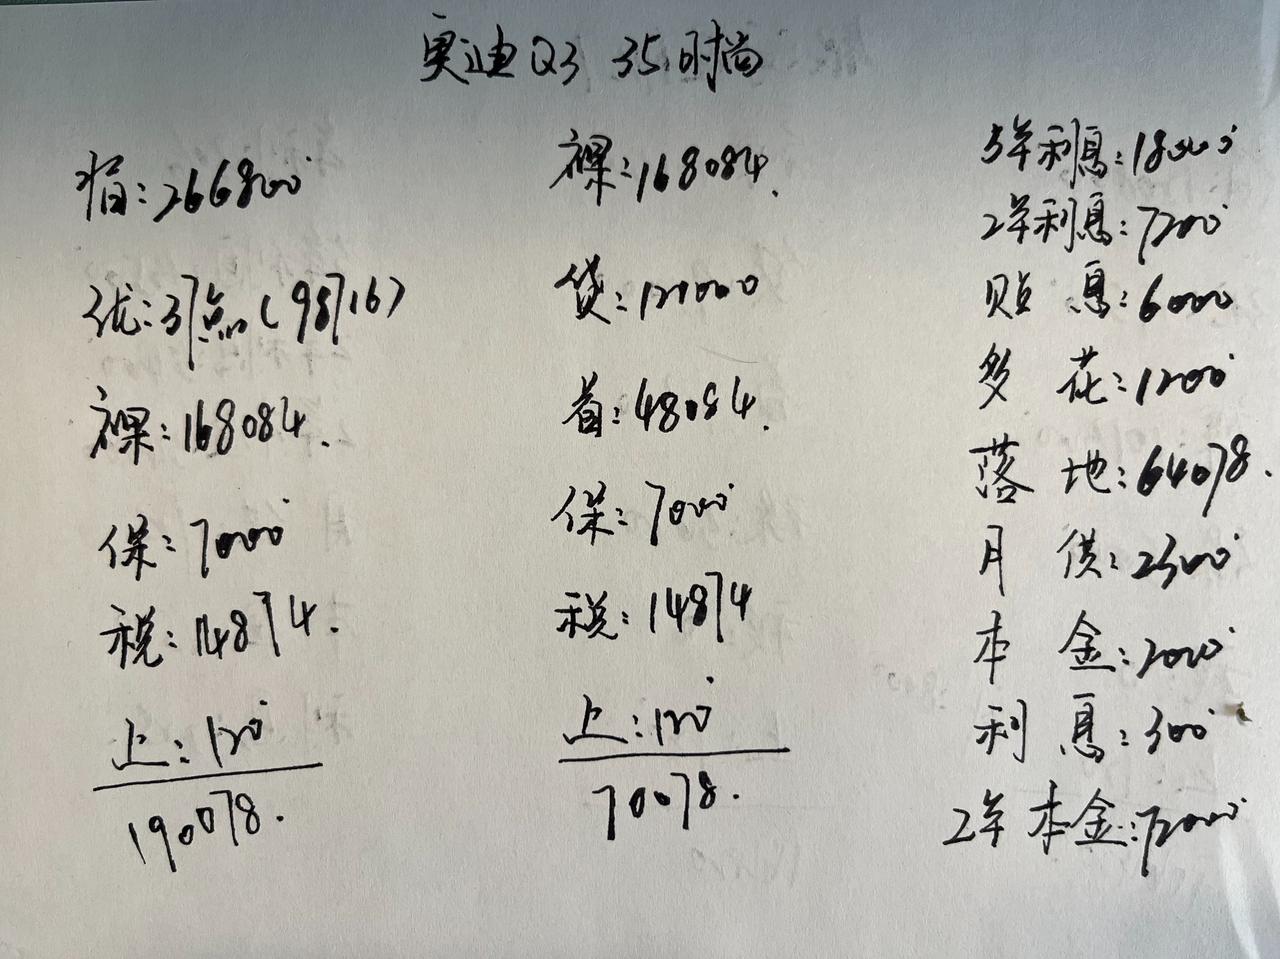 奥迪Q3 35时尚
指:266800
优:37点(98716)
裸:168084.
保:7000
税:14874.
上:120
190078.
裸:168084.
贷:120000
首:48084.
保:7000
税:14874
上:120
70078.
5年利息:18000
2年利息:7200
贴息:6000
多花:1200
落地:64078.
月供:2300
本金:2000
利息:300
2年本金:72000